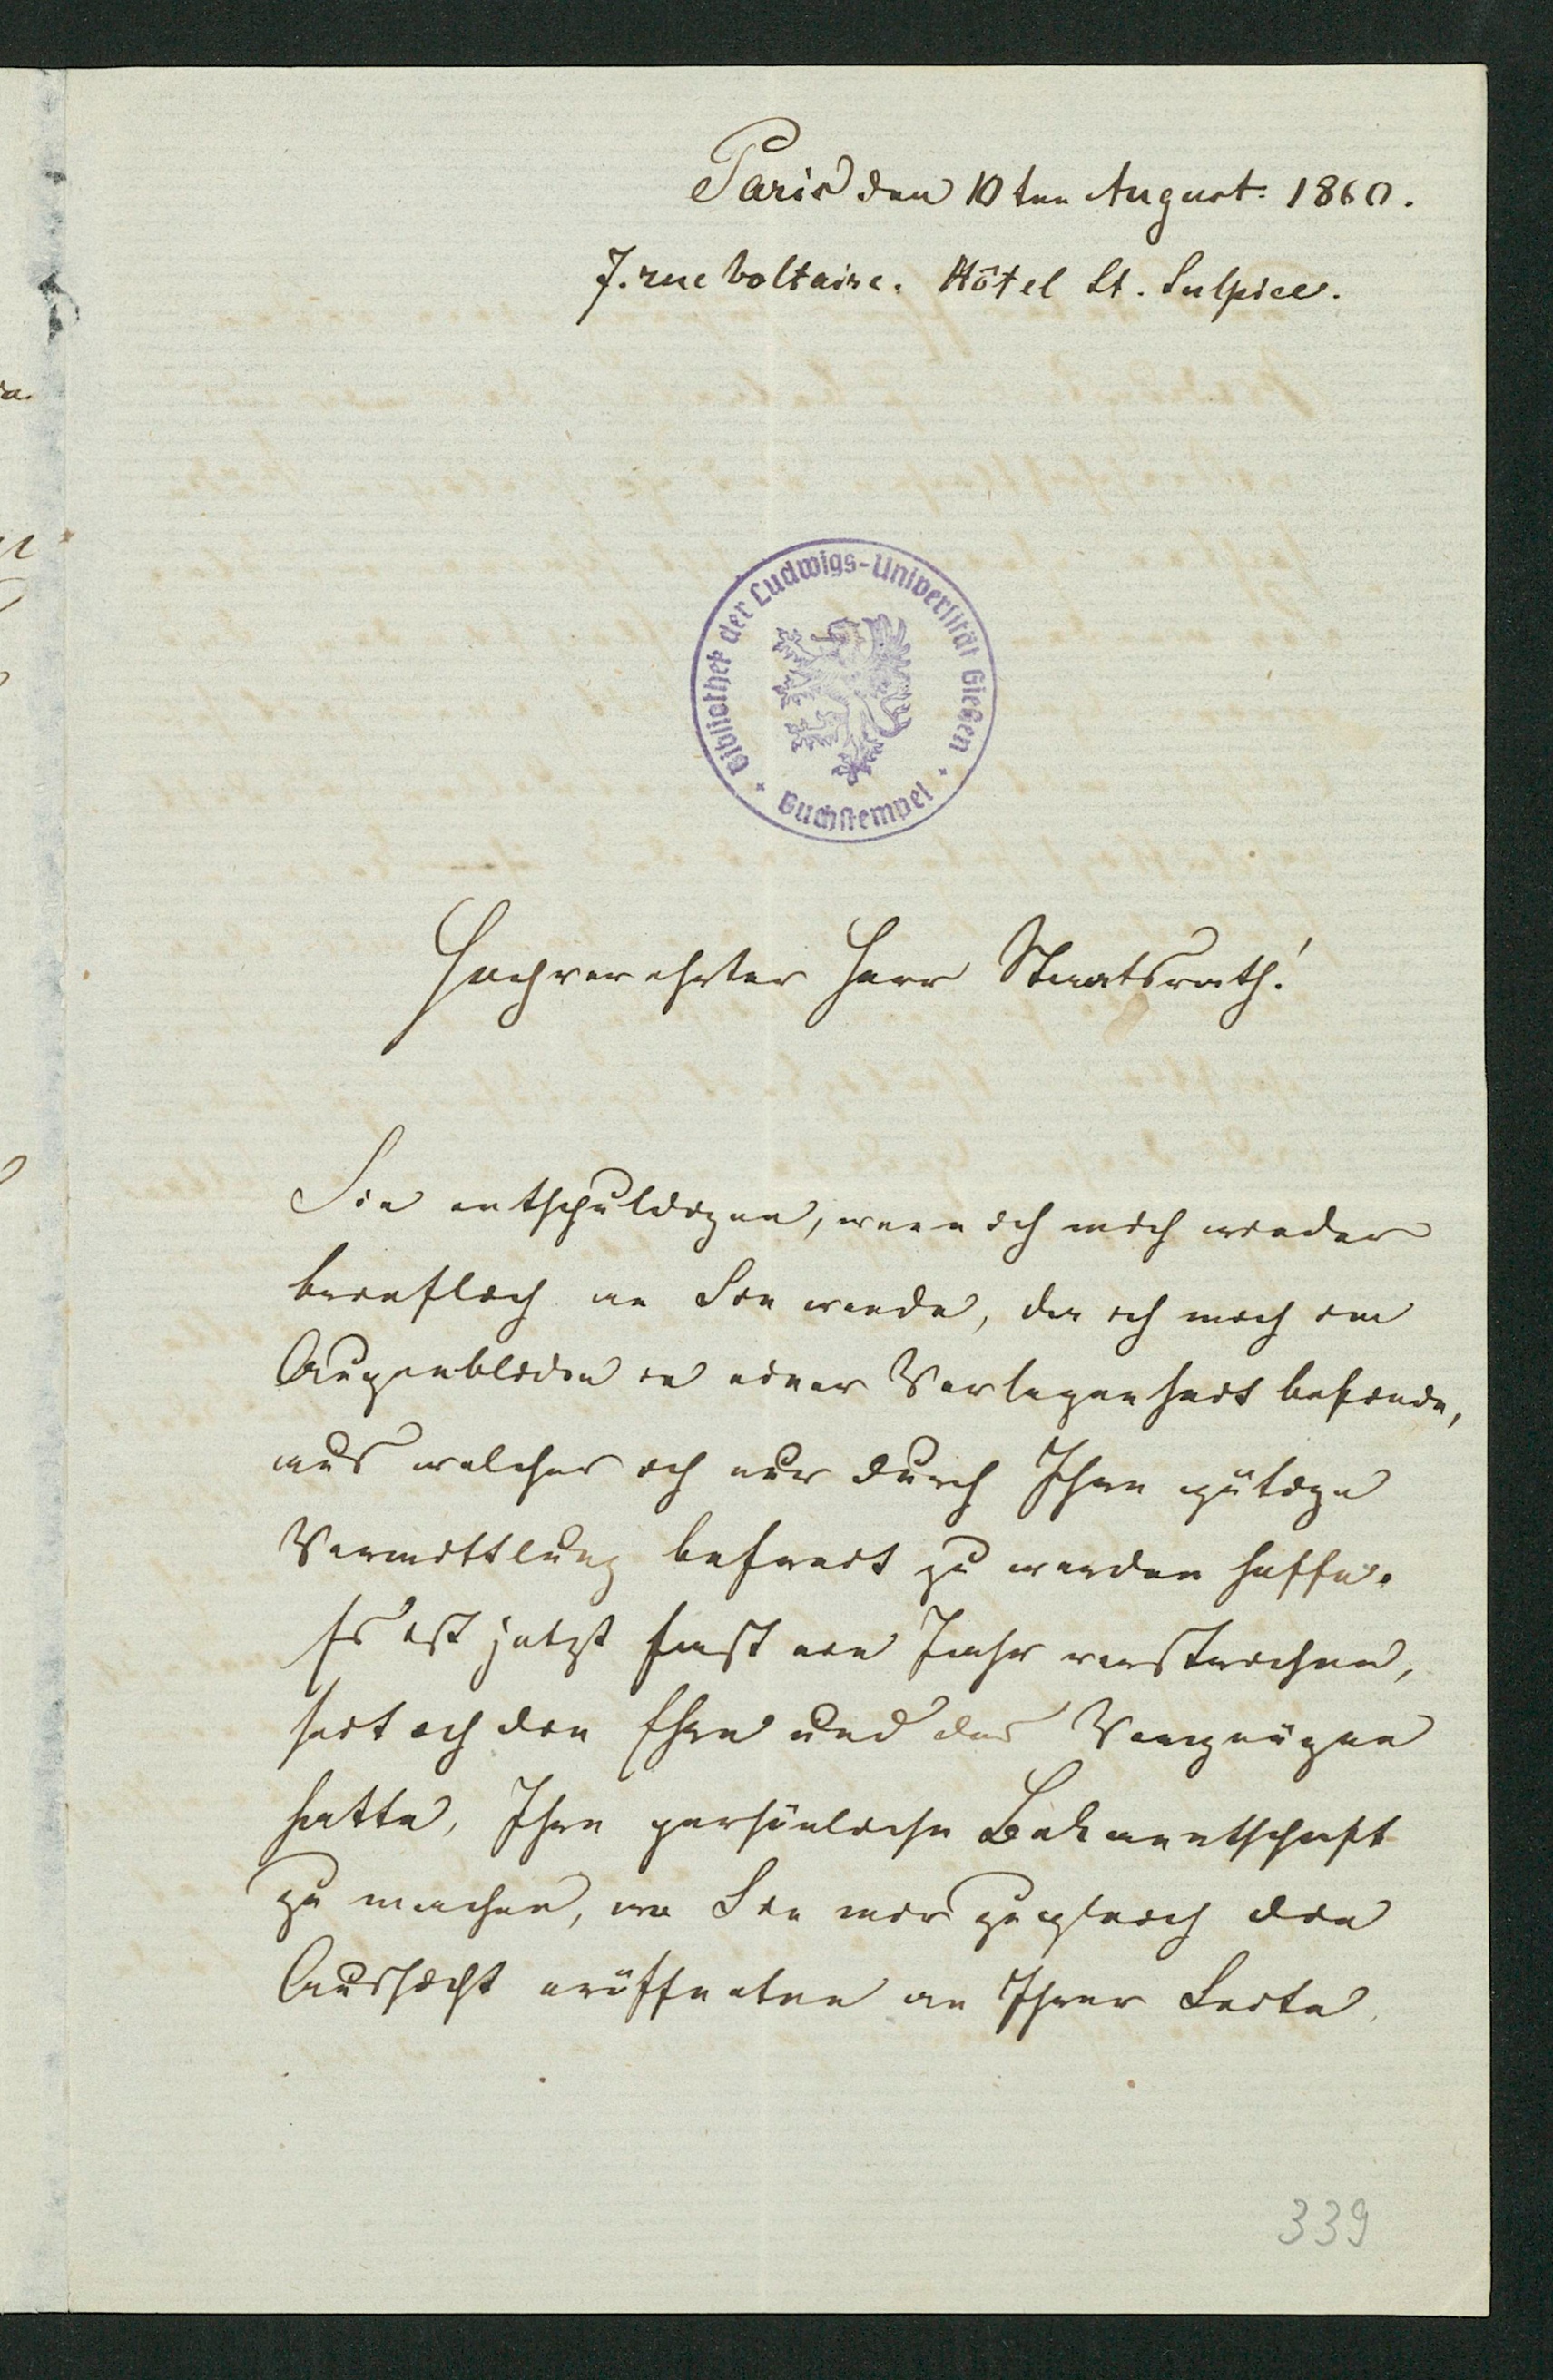 Paris den 10ten August. 1860.
7. rue Voltaire. Hôtel St. Sulpice.
Bibliothek der Ludwigs-Universität Gießen
Buchstempel
Hochverehrter Herr Staatsrath!
Sie entschuldigen, wenn ich mich wieder
brieflich an Sie wende, da ich mich im
Augenblicke in einer Verlegenheit befinde,
aus welcher ich nur durch Ihre gütige
Vermittlung befreit zu werden hoffe.
Es ist jetzt fast ein Jahr verstrichen,
seit ich die Ehre und das Vergnügen
hatte, Ihre persönliche Bekanntschaft
zu machen, wo Sie mir zugleich die
Aussicht eröffneten an Ihrer Seite
339